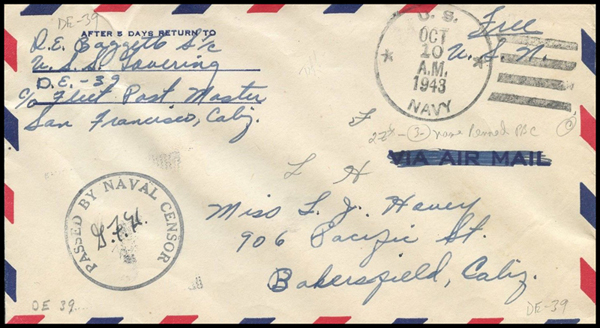 DE-39
AFTER 5 DAYS RETURN TO
R.E. Baggett S/c
U.S.S. Lovering
D.E.-39
c/o Fleet Post Master
San Francisco, Calif.
U. S.
OCT
10
A.M.
1943
NAVY
Free
U.S.N.
F
VIA AIR MAIL
L H
Miss L. J. Havey
906 Pacific St.
Bakersfield, Calif.
PASSED BY NAVAL CENSOR
DE 39
DE-39